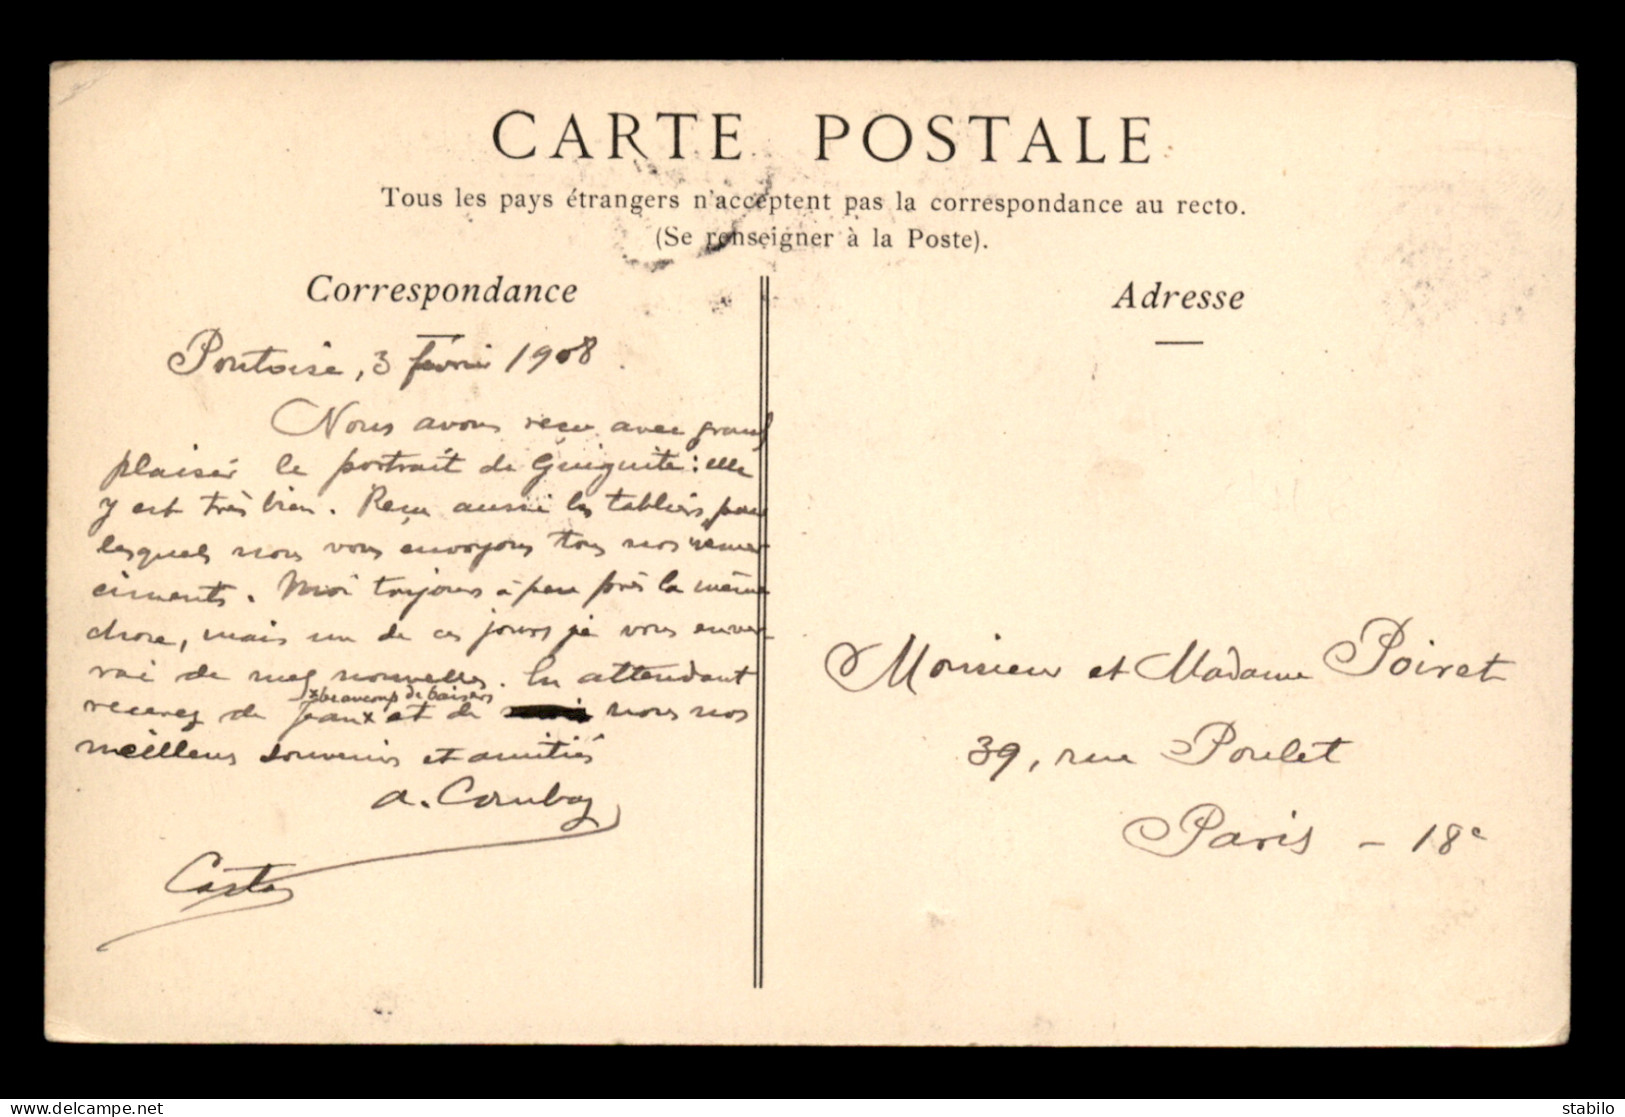 CARTE POSTALE
Tous les pays étrangers n'acceptent pas la correspondance au recto.
(Se renseigner à la Poste).
Correspondance
Pontoise, 3 février 1908
Nous avons reçu avec grand
plaisir le portrait de Guiguite : elle
y est très bien. Reçu aussi les tabliers, pour
lesquels nous vous envoyons tous nos remer
ciments. Moi toujours à peu près la même
chose, mais un de ces jours je vous enver-
rai de mes nouvelles. En attendant
x beaucoup de baisers
recevez de Jean x et de nous nos
meilleurs souvenirs et amitiés
a.
Adresse
Monsieur et Madame Poiret
39, rue Poulet
Paris - 18e
delcampe.net
stabilo